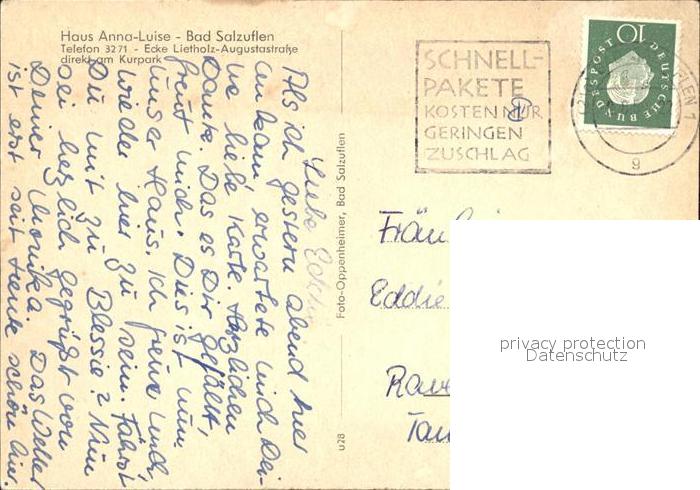 Haus Anna-Luise - Bad Salzuflen
Telefon 3271 - Ecke Lietholz-Augustastraße
direkt am Kurpark
SCHNELL-
PAKETE
KOSTEN NUR
GERINGEN
ZUSCHLAG
10
DEUTSCHE BUNDESPOST
g
Liebe
Als ich gestern abend hier
ankam erwartete mich Dei-
ne liebe Karte. Herzlichen
Dank. Das es Dir gefällt,
freut mich. Dies ist nun
unser Haus. Ich freue mich,
wieder hier zu sein. Fährst
Du mit zu Blessie? Nun
sei herzlich gegrüßt von
Deiner Monika. Das Wetter
ist erst seit heute schön hier.
Foto-Oppenheimer, Bad Salzuflen
u28
Eddie
privacy protection
Datenschutz